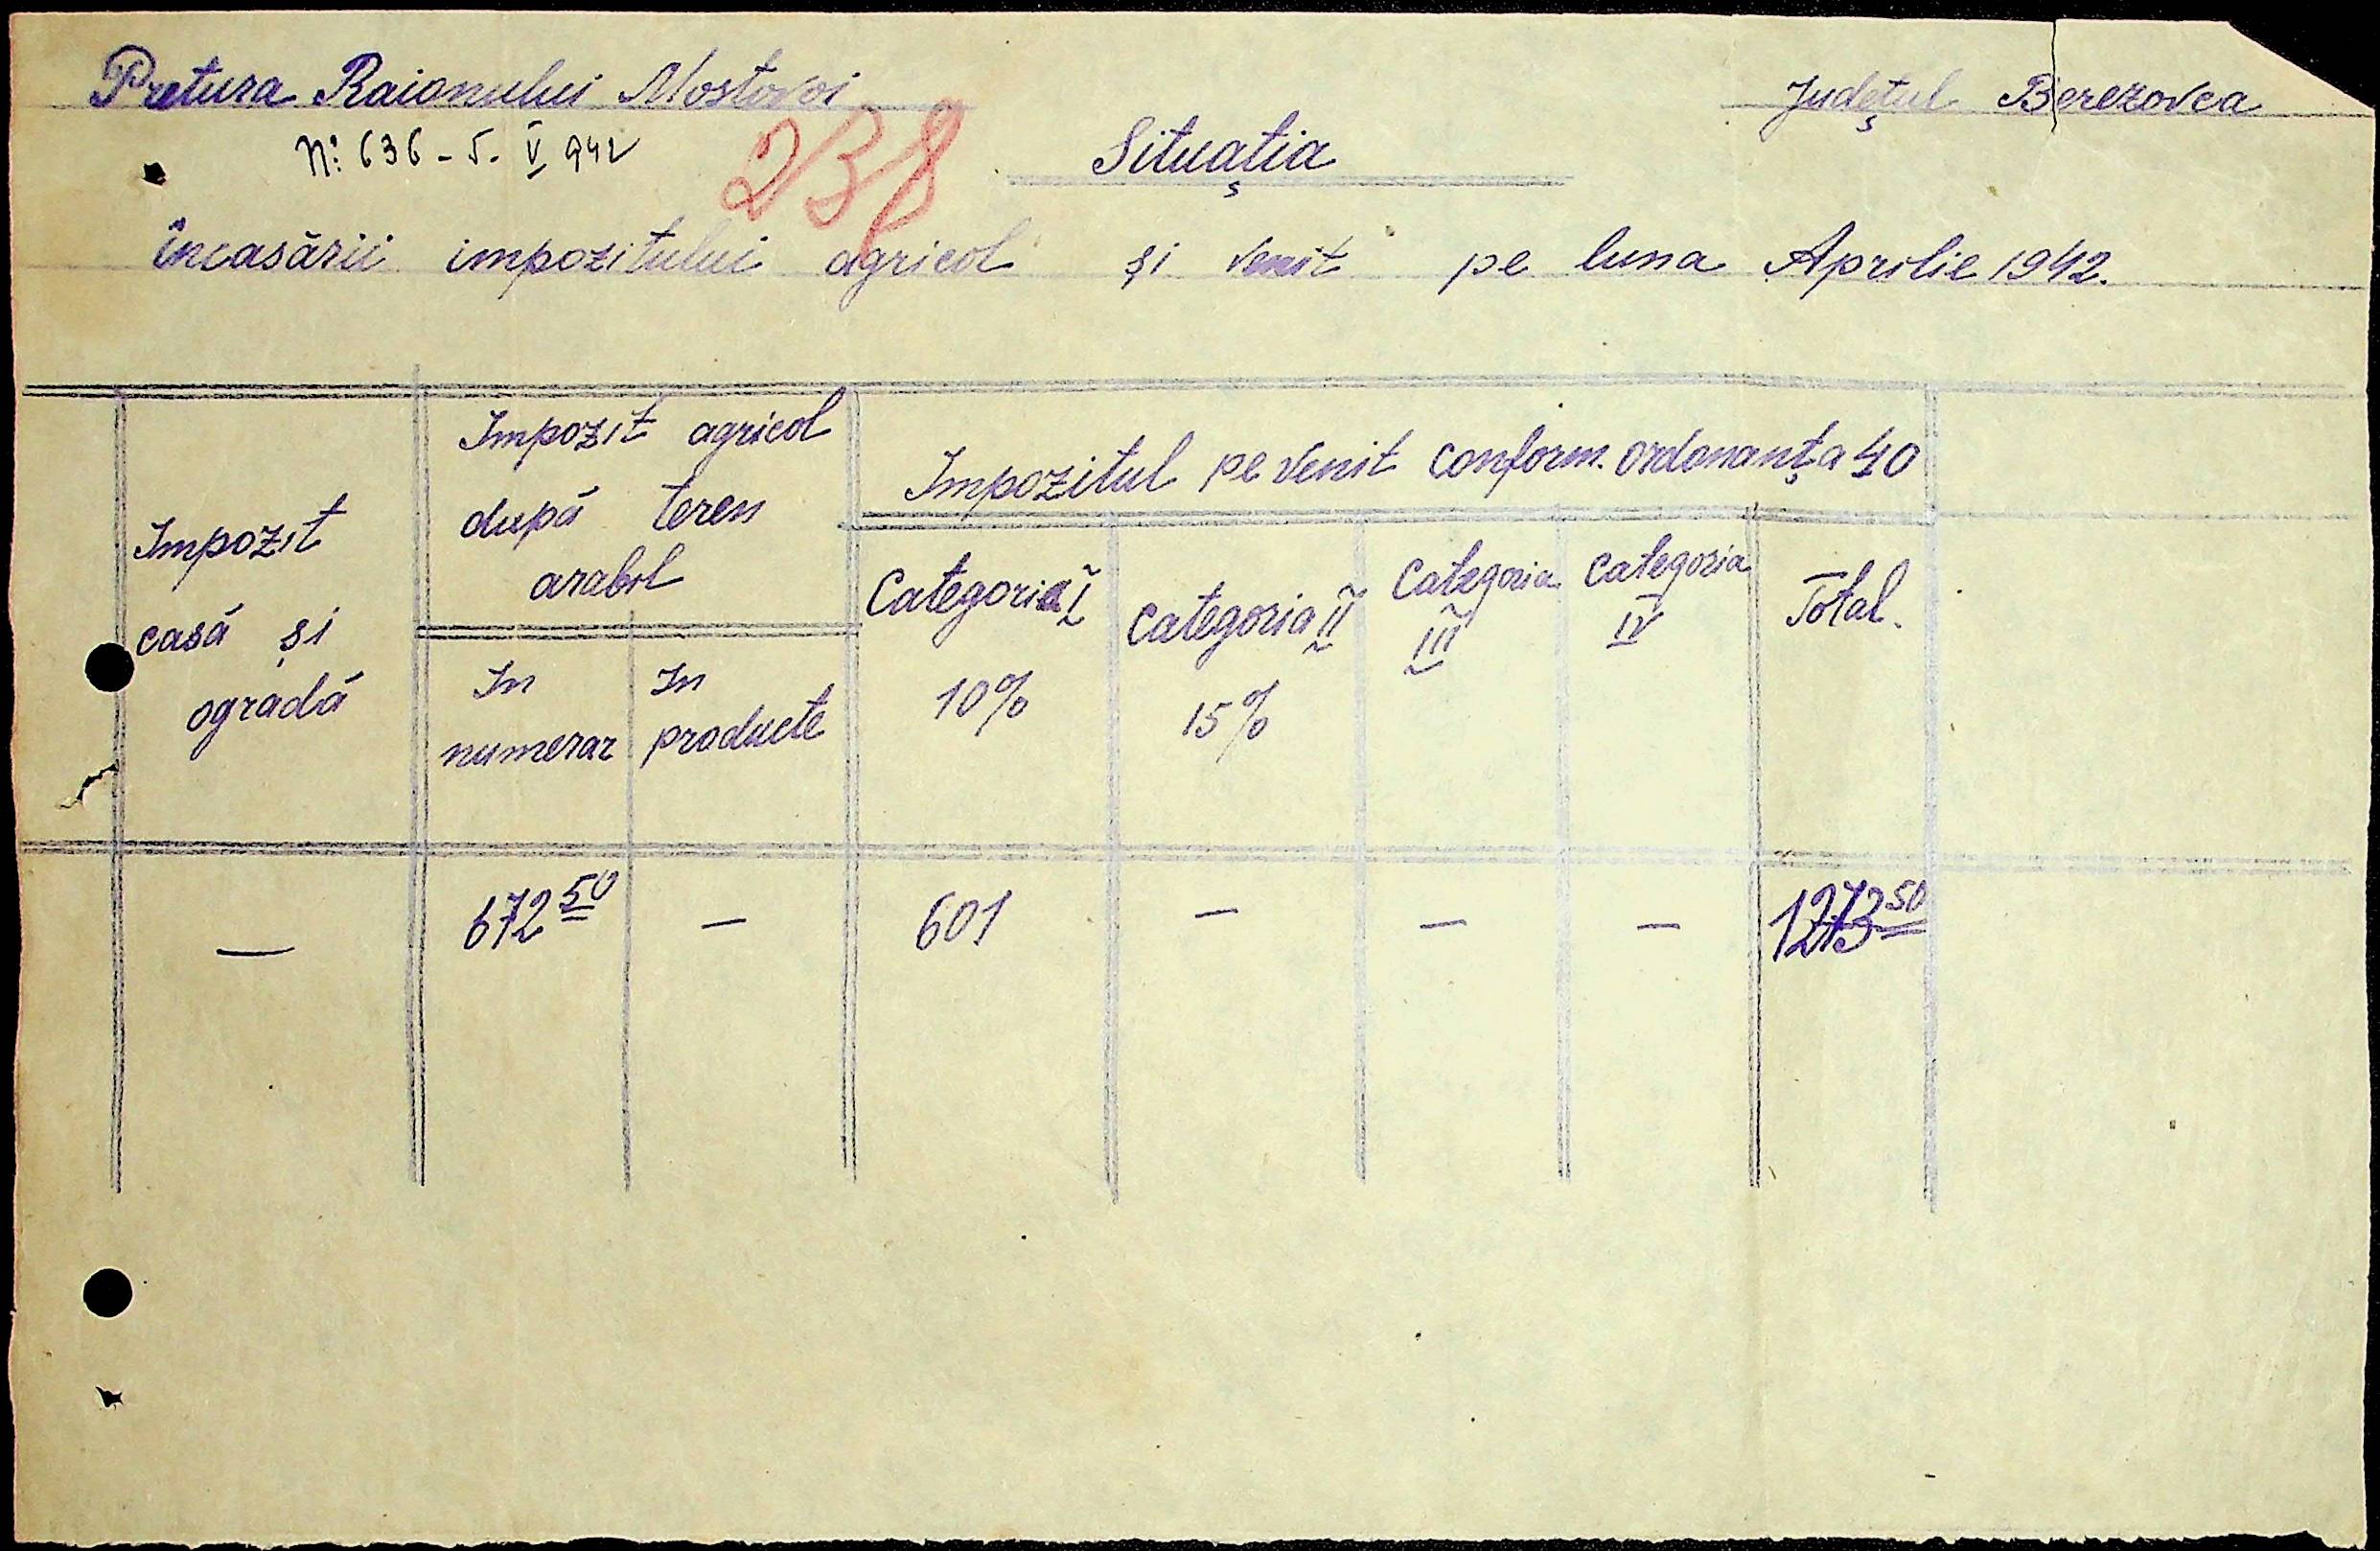 Pretura Raionului Mostovoi
Județul Berezovca
N: 636 - 5. V 942
238
Situația
încasării impozitului agricol și venit pe luna Aprilie 1942.
Impozit
casă și
ogradă
Impozit agricol
după teren
arabil
In
numerar
In
producte
Impozitul pe venit conform. ordonanța 40
Categoria I
10%
Categoria II
15%
Categoria
III
Categoria
IV
Total.
— 672 50 — 601 — — — 1273 50